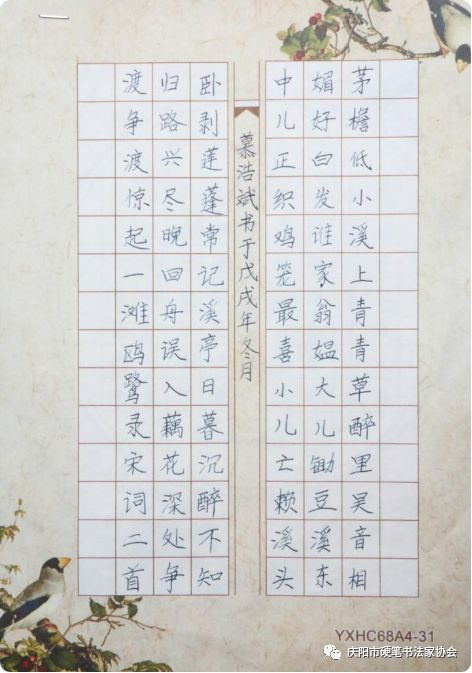 茅檐低小溪上青青草醉里吴音相
媚好白发谁家翁媪大儿锄豆溪东
中儿正织鸡笼最喜小儿亡赖溪头
慕浩斌书于戊戌年冬月
卧剥莲蓬常记溪亭日暮沉醉不知
归路兴尽晚回舟误入藕花深处争
渡争渡惊起一滩鸥鹭录宋词二首
YXHC68A4-31
庆阳市硬笔书法家协会